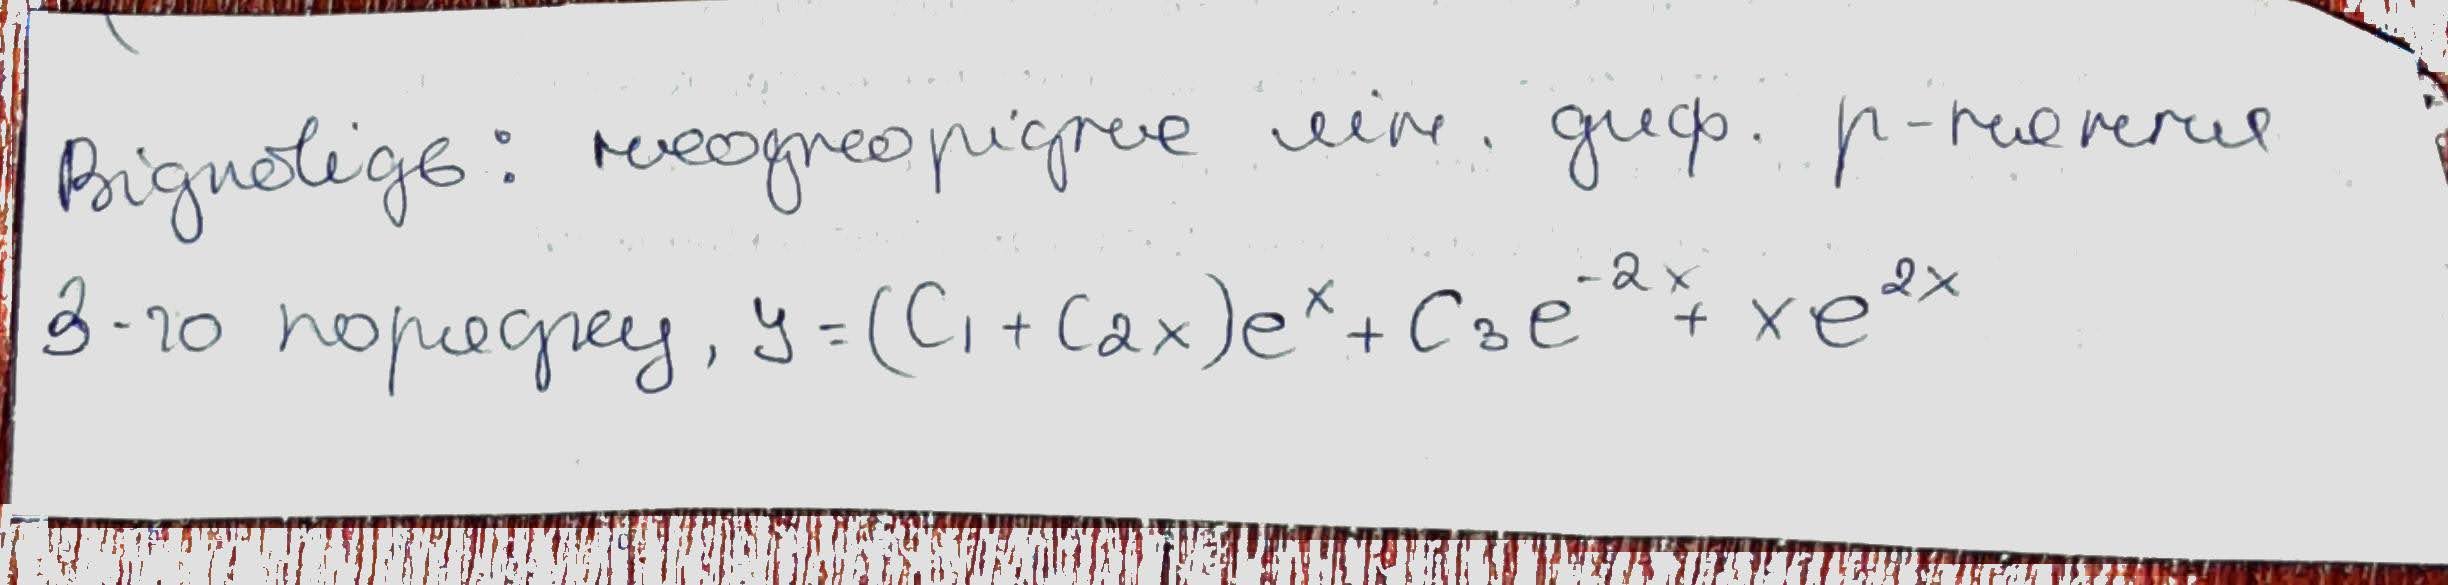 Відповідь: неоднорідне лін. диф. р-няння
3-го порядку, y = (C₁ + C₂x)eˣ + C₃e⁻²ˣ + xe²ˣ